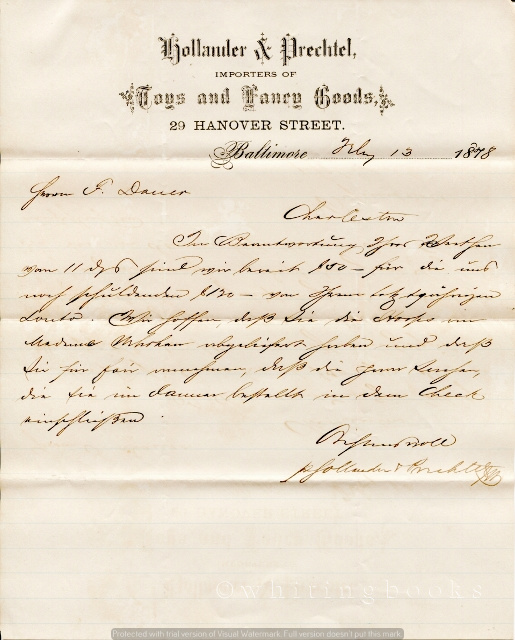 Hollander & Prechtel,
IMPORTERS OF
Toys and Fancy Goods,
29 HANOVER STREET.
Baltimore Feby 13 1878
Herrn F. Dauer
Charleston
In Beantwortung Ihres Werthen
vom 11 ds sind wir bereit $80 – für die uns
noch schuldenden $120 – von Ihrem
Conto. Wir hoffen, daß Sie die
abgeliefert haben und daß
Sie für fair annehmen, daß die
die Sie im Januar bestellt in dem Check
einschließen.
Achtungsvoll
Hollander & Prechtel
©whitingbooks
Protected with trial version of Visual Watermark. Full version doesn't put this mark.